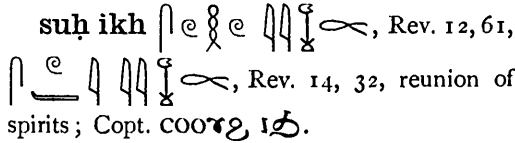 suḥ ikh 𓋴𓏲𓎛𓏲 𓇋𓇋, Rev. 12, 61,
, Rev. 14, 32, reunion of
spirits; Copt. ⲥⲟⲟⲩϩ ⲓϧ.